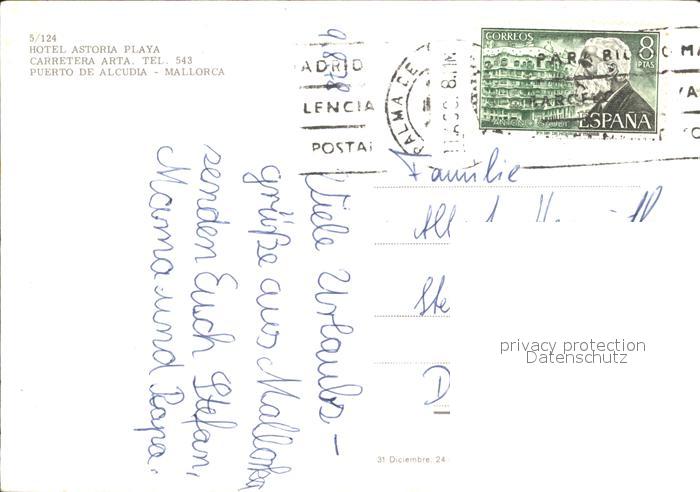 5/124
HOTEL ASTORIA PLAYA
CARRETERA ARTA. TEL. 543
PUERTO DE ALCUDIA - MALLORCA
ADRID
LENCIA
POSTA
PALMA DE
CORREOS
8
PTAS
PARA
ESPAÑA
Viele Urlaubs-
grüße aus Mallorka
senden Euch Stefan,
Mama und Papa.
Familie
Ste
D
privacy protection
Datenschutz
31 Diciembre, 24